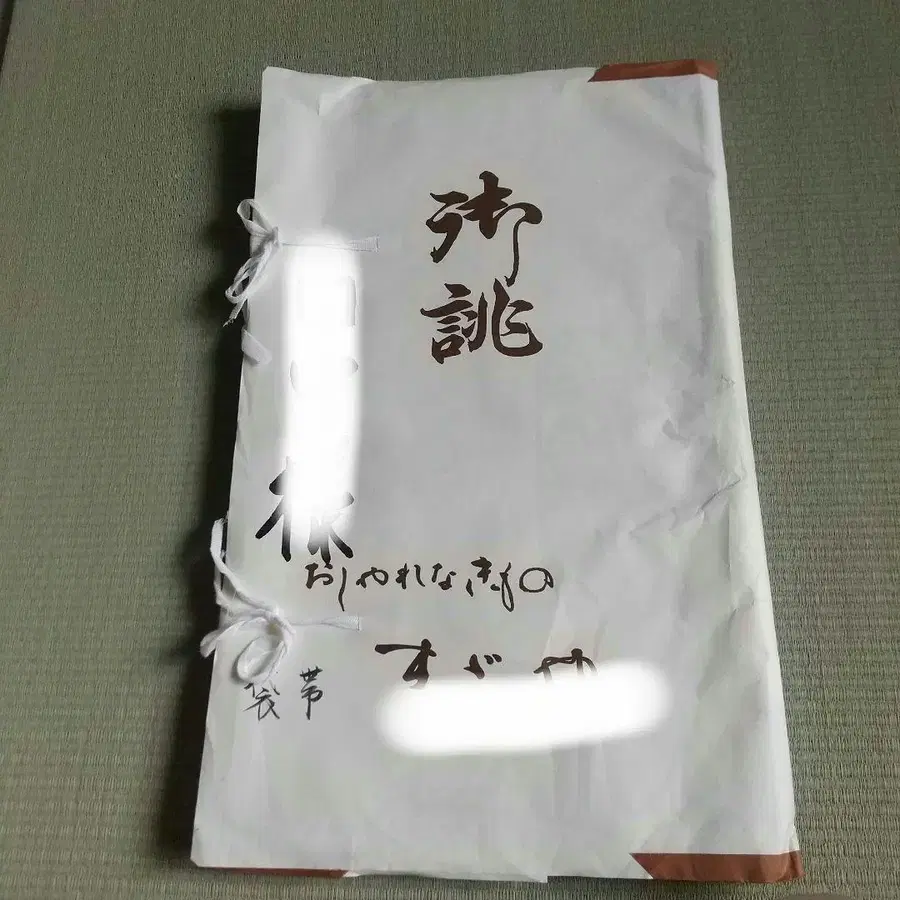 御誂
様
おしゃれなきもの
袋帯